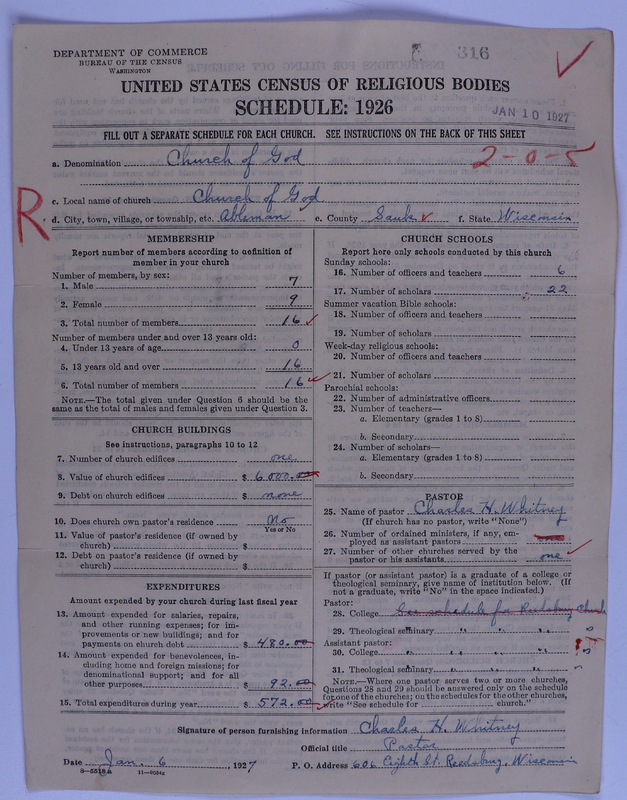 DEPARTMENT OF COMMERCE
BUREAU OF THE CENSUS
WASHINGTON
316
UNITED STATES CENSUS OF RELIGIOUS BODIES
SCHEDULE: 1926
JAN 10 1927
FILL OUT A SEPARATE SCHEDULE FOR EACH CHURCH. SEE INSTRUCTIONS ON THE BACK OF THIS SHEET
a. Denomination Church of God
2-0-5
c. Local name of church Church of God
R
d. City, town, village, or township, etc. Ableman e. County Sauk f. State Wisconsin
MEMBERSHIP
Report number of members according to definition of
member in your church
Number of members, by sex:
1. Male 7
2. Female 9
3. Total number of members 16
Number of members under and over 13 years old:
4. Under 13 years of age 0
5. 13 years old and over 16
6. Total number of members 16
NOTE.—The total given under Question 6 should be
same as the total of males and females given under Question 3.
CHURCH BUILDINGS
See instructions, paragraphs 10 to 12
7. Number of church edifices one
8. Value of church edifices $ 6000.00
9. Debt on church edifices $ none
10. Does church own pastor's residence No
Yes or No
11. Value of pastor's residence (if owned by
church) $
12. Debt on pastor's residence (if owned by
church) $
EXPENDITURES
Amount expended by your church during last fiscal year
13. Amount expended for salaries, repairs,
and other running expenses; for im-
provements or new buildings; and for
payments on church debt $ 480.00
14. Amount expended for benevolences, in-
cluding home and foreign missions; for
denominational support; and for all
other purposes $ 92.00
15. Total expenditures during year $ 572.00
CHURCH SCHOOLS
Report here only schools conducted by this church
Sunday schools:
16. Number of officers and teachers 6
17. Number of scholars 22
Summer vacation Bible schools:
18. Number of officers and teachers
19. Number of scholars
Week-day religious schools:
20. Number of officers and teachers
21. Number of scholars
Parochial schools:
22. Number of administrative officers
23. Number of teachers—
a. Elementary (grades 1 to 8)
b. Secondary
24. Number of scholars—
a. Elementary (grades 1 to 8)
b. Secondary
PASTOR
25. Name of pastor Charles H. Whitney
(If church has no pastor, write "None")
26. Number of ordained ministers, if any, em-
ployed as assistant pastors
27. Number of other churches served by the
pastor or his assistants one
If pastor (or assistant pastor) is a graduate of a college or
theological seminary, give name of institution below. (If
not a graduate, write "No" in the space indicated.)
Pastor:
28. College See schedule for Reedsburg Church
29. Theological seminary " " " "
Assistant pastor:
30. College " " " "
31. Theological seminary " " " "
NOTE.—Where one pastor serves two or more churches,
Questions 28 and 29 should be answered only on the schedule
for one of the churches; on the schedules for the other churches,
write "See schedule for church."
Signature of person furnishing information Charles H. Whitney
Official title Pastor
Date Jan. 6, 1927 P. O. Address 606 Eighth St. Reedsburg, Wisconsin